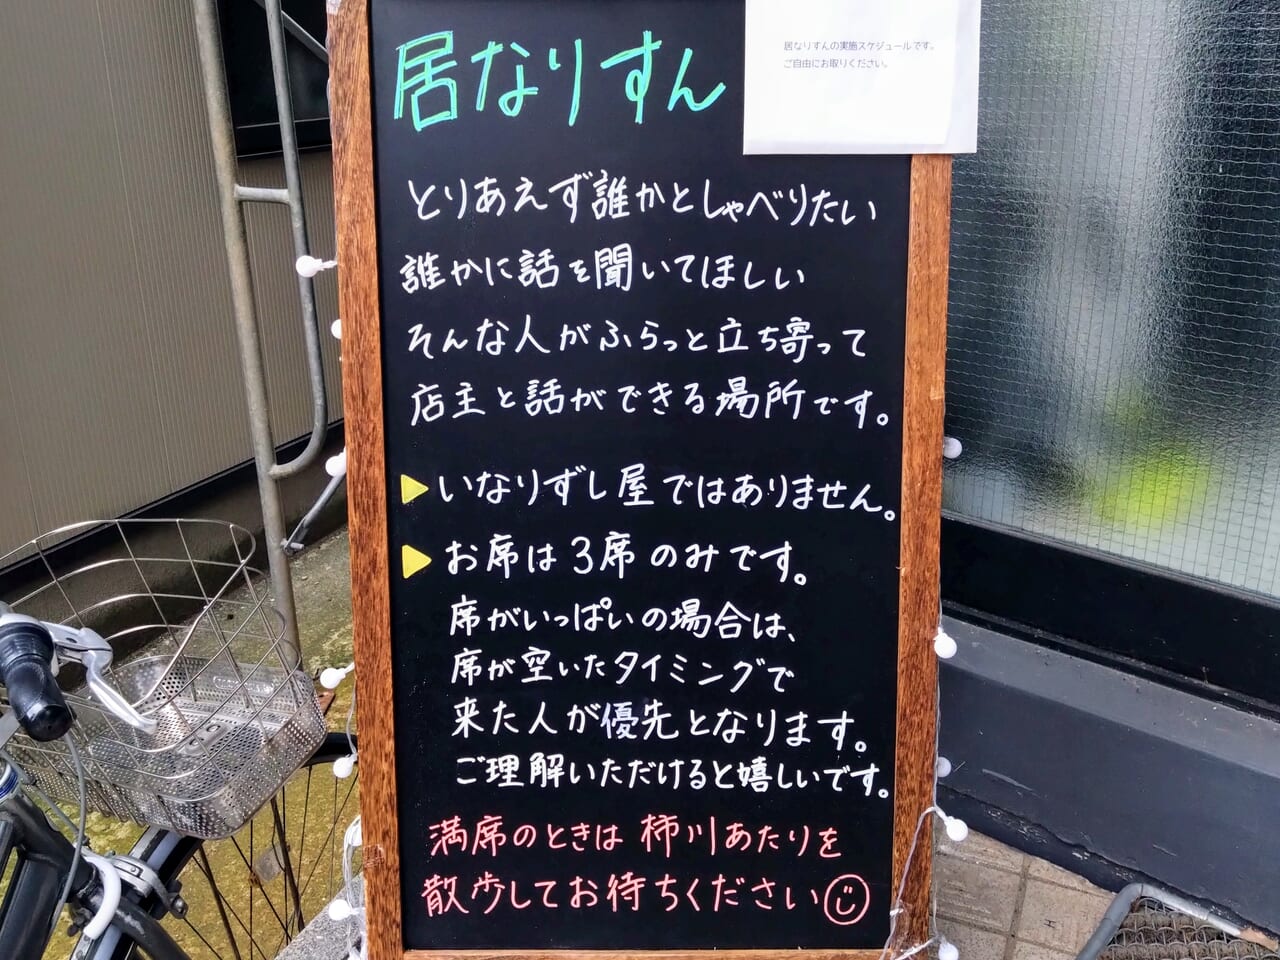 居なりすん
居なりすんの実施スケジュールです。
ご自由にお取りください。
とりあえず誰かとしゃべりたい
誰かに話を聞いてほしい
そんな人がふらっと立ち寄って
店主と話ができる場所です。
▶いなりずし屋ではありません。
▶お席は3席のみです。
席がいっぱいの場合は、
席が空いたタイミングで
来た人が優先となります。
ご理解いただけると嬉しいです。
満席のときは 柿川あたりを
散歩してお待ちください☺